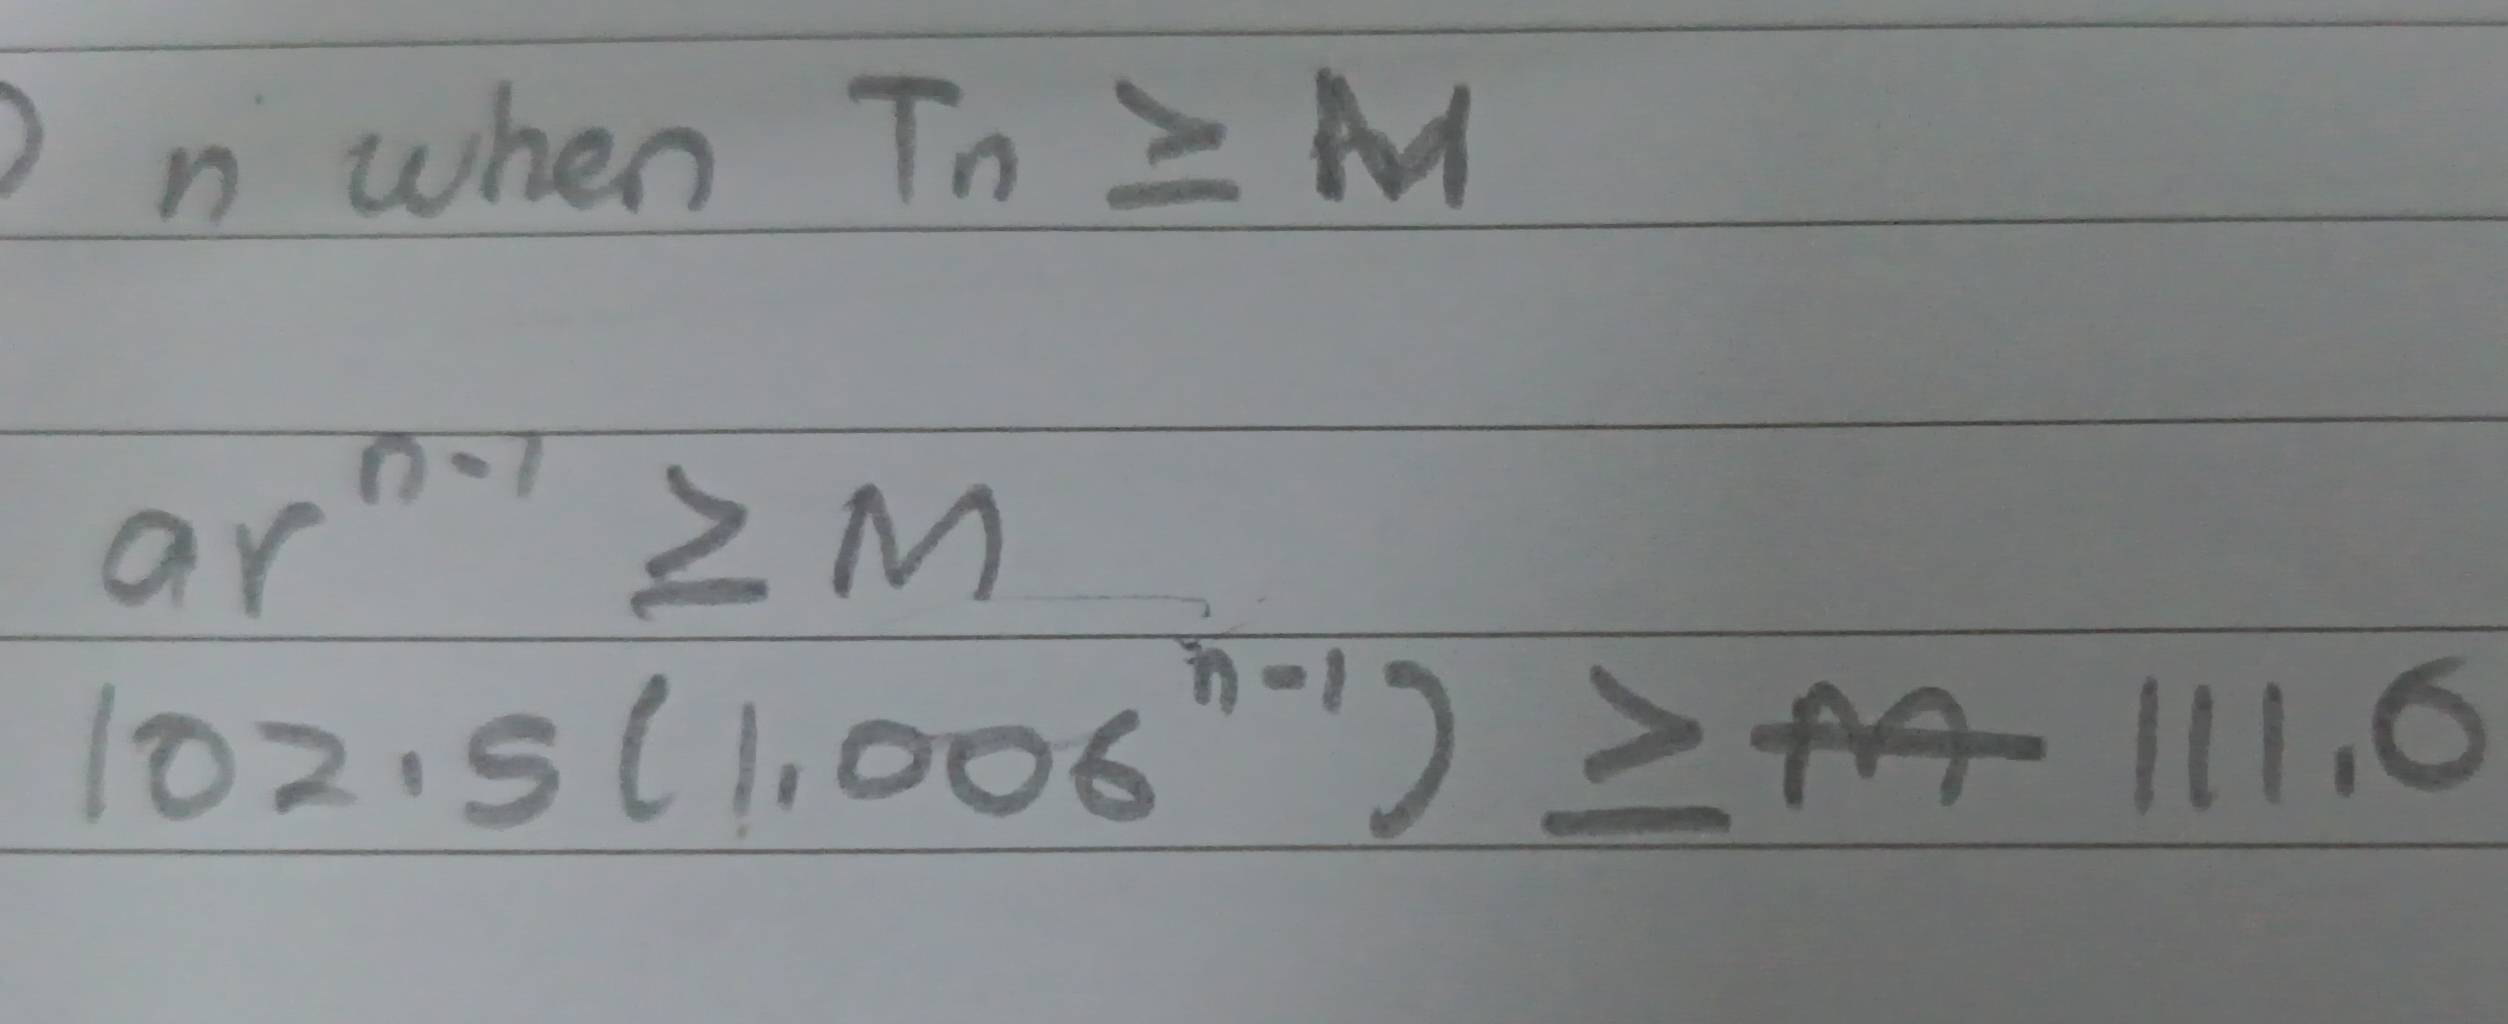 ) n when Tn ≥ M
ar^{n-1} ≥ M
102.5(1.006^{n-1}) ≥ ~~M~~ 111.6